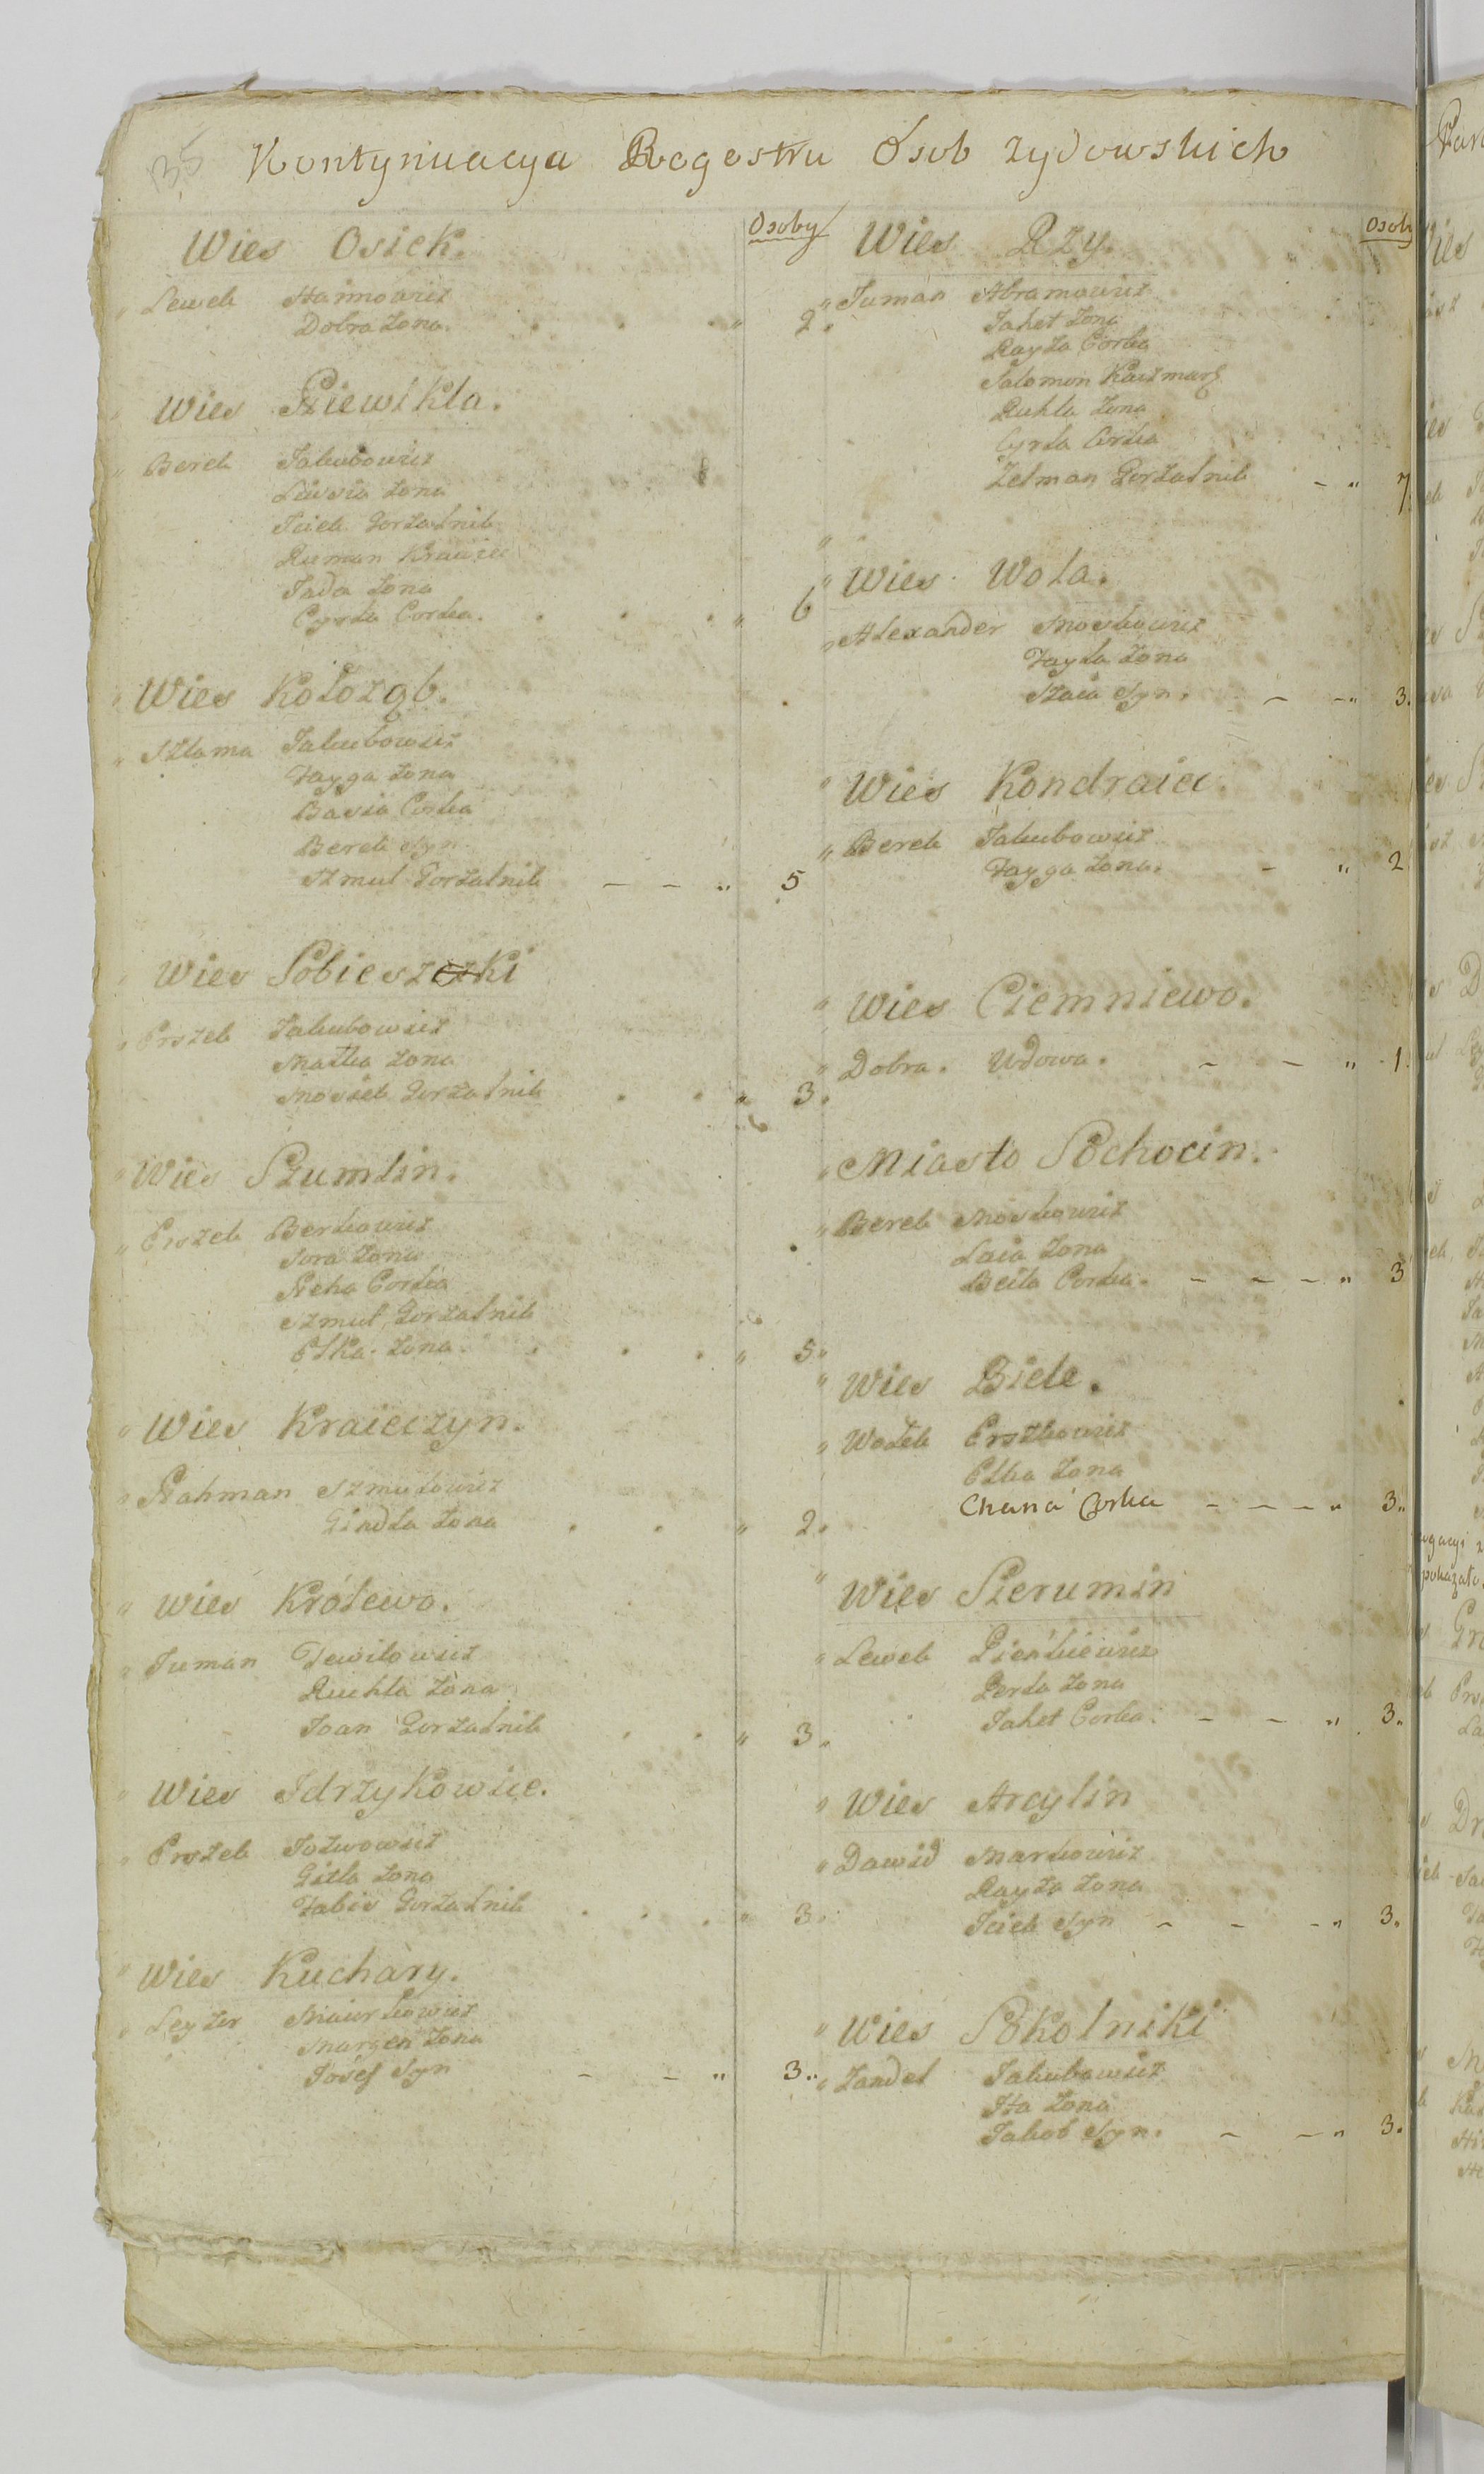 35
Kontynuacya Regestru Osob Zydowskich
Osoby
Wies Osiek.
Lewek Haimowicz
Dobra Zona. 2.
Wies Niewikla.
Berek Jakubowicz
Liwsia Zona
Icick Gorzalnik
Ruman Krawiec
Jada Zona
Cyrla Corka. 6
Wies Kołoząb.
Szlama Jakubowicz
Fayga Zona
Basia Corka
Berek Syn
Szmul Gorzalnik 5
Wies Sobieszczki
Erszek Jakubowicz
Matka Zona
Mosiek Gorzalnik 3.
Wies Szumlin.
Erszek Berkowicz
Sora Zona
Neha Corka
Szmul Gorzalnik
Elka Zona 5.
Wies Kraieczyn.
Nahman Szmulowicz
Gindla Zona 2.
Wies Królewo.
Juman Dewilowicz
Ruchla Zona
Joan Gorzalnik 3.
Wies Idrzykowice.
Erszek Jozwowicz
Gitla Zona
Fabis Gorzalnik 3.
Wies Kuchary.
Leyzer Maiorkowicz
Margen Zona
Josef Syn 3.
Osoby
Wies Rzy.
Juman Abramowicz
Jahet Zona
Rayza Corka
Salomon Karzmarz
Ruhla Zona
Cyrla Corka
Zelman Gorzalnik 7.
Wies Wola.
Alexander Moskowicz
Fayla Zona
Szaia Syn. 3.
Wies Kondraiec.
Berek Jakubowicz
Fayga Zona. 2
Wies Ciemniewo.
Dobra. Wdowa. 1.
Miasto Sochocin.
Berek Moskowicz
Laia Zona
Beila Corka. 3
Wies Biele.
Wolek Erszkowicz
Elka Zona
Chana Corka 3.
Wies Sierumin
Lewek Pienkiewicz
Perla Zona
Jahet Corka. 3.
Wies Arcylin
Dawid Markowicz
Rayza Zona
Iciek Syn 3.
Wies Sokolniki
Zandel Jakubowicz
Ita Zona
Jakob Syn. 3.